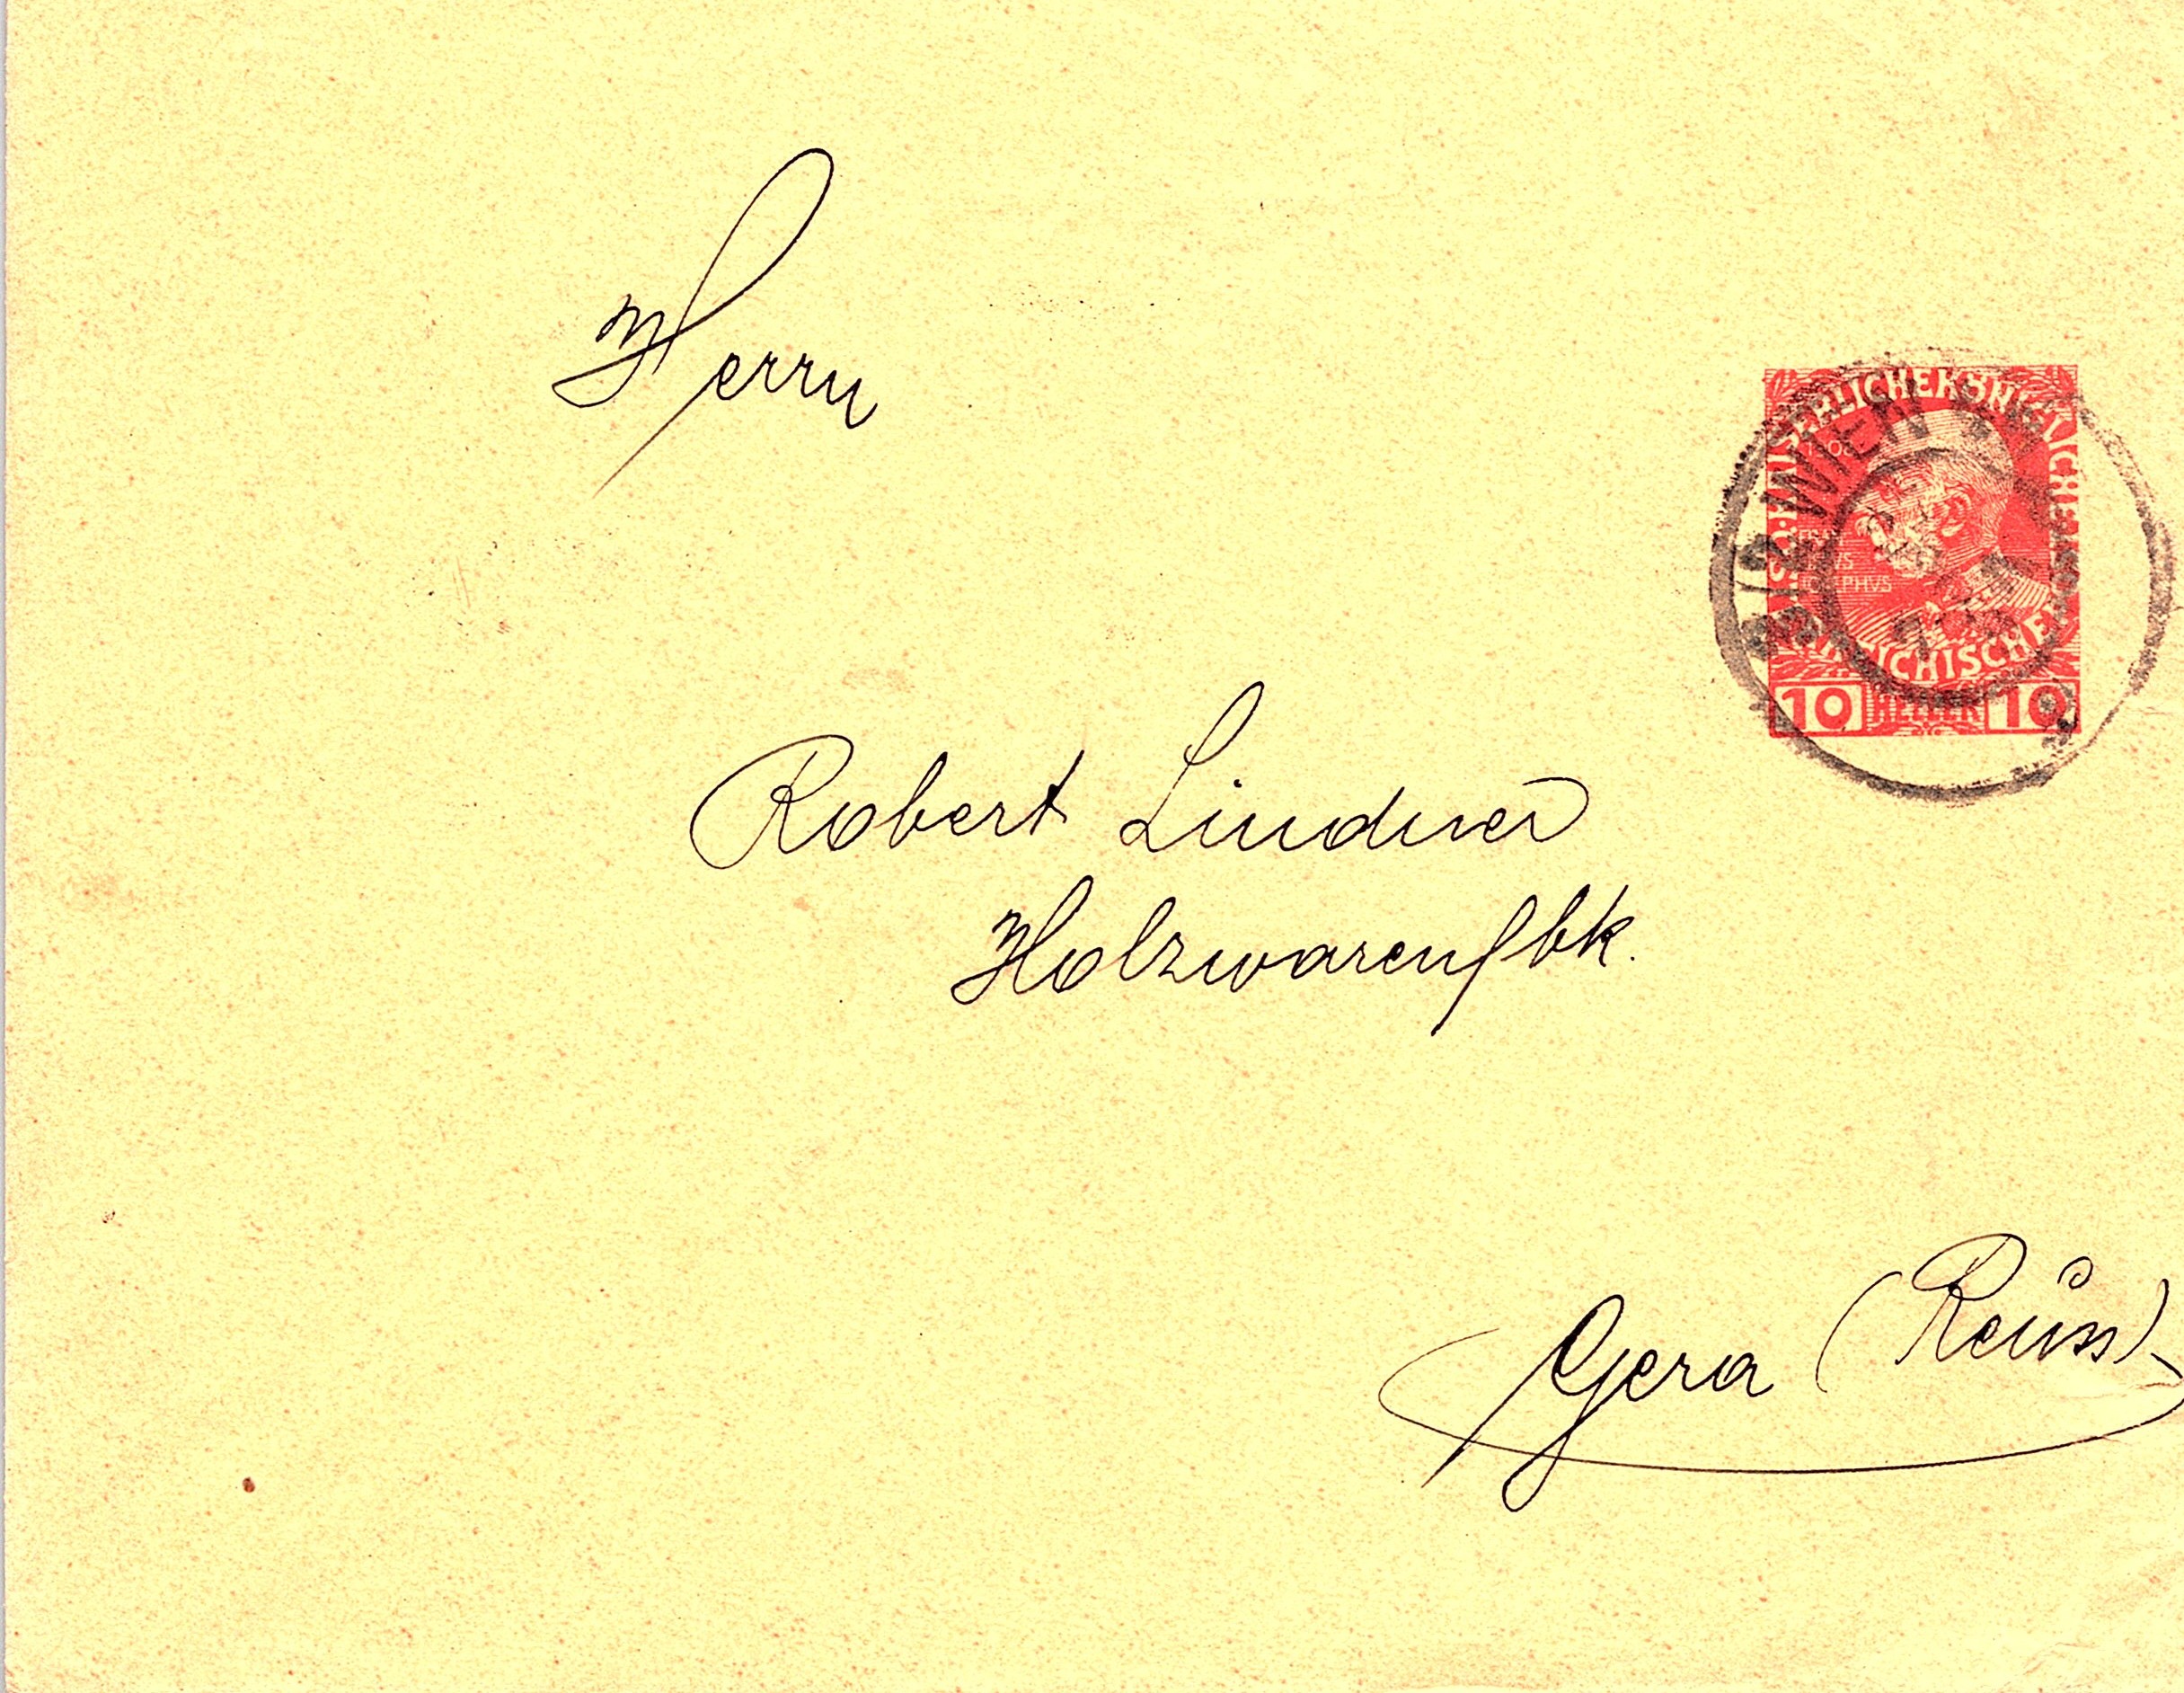 Herrn
KAISERLICHE KÖNIGLICHE ÖSTERREICHISCHE
WIEN
10 HELLER 10
Robert Lindner
Holzwarenfbk.
Gera (Reuss)